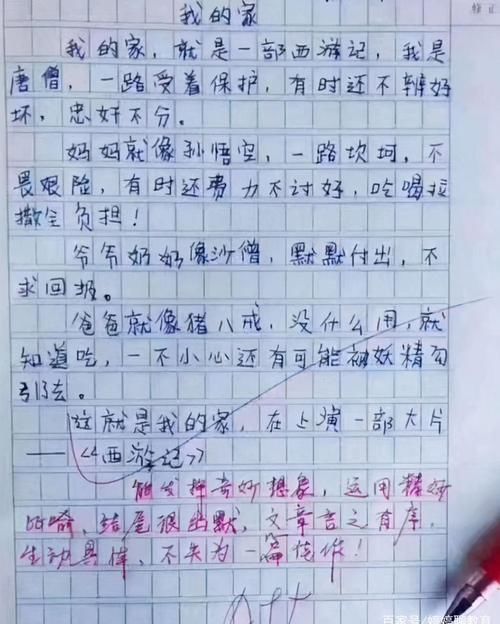 我的家
我的家，就是一部西游记，我是
唐僧，一路受着保护，有时还不辨好
坏，忠奸不分。
妈妈就像孙悟空，一路坎坷，不
畏艰险，有时还费力不讨好，吃喝拉
撒全负担！
爷爷奶奶像沙僧，默默付出，不
求回报。
爸爸就像猪八戒，没什么用，就
知道吃，一不小心还有可能被妖精勾
引去。
这就是我的家，在上演一部大片
——《西游记》
能发挥奇妙想象，运用精妙
比喻，结尾很幽默，文章言之有序，
生动具体，不失为一篇佳作！
A++
百家号/婷婷聊教育